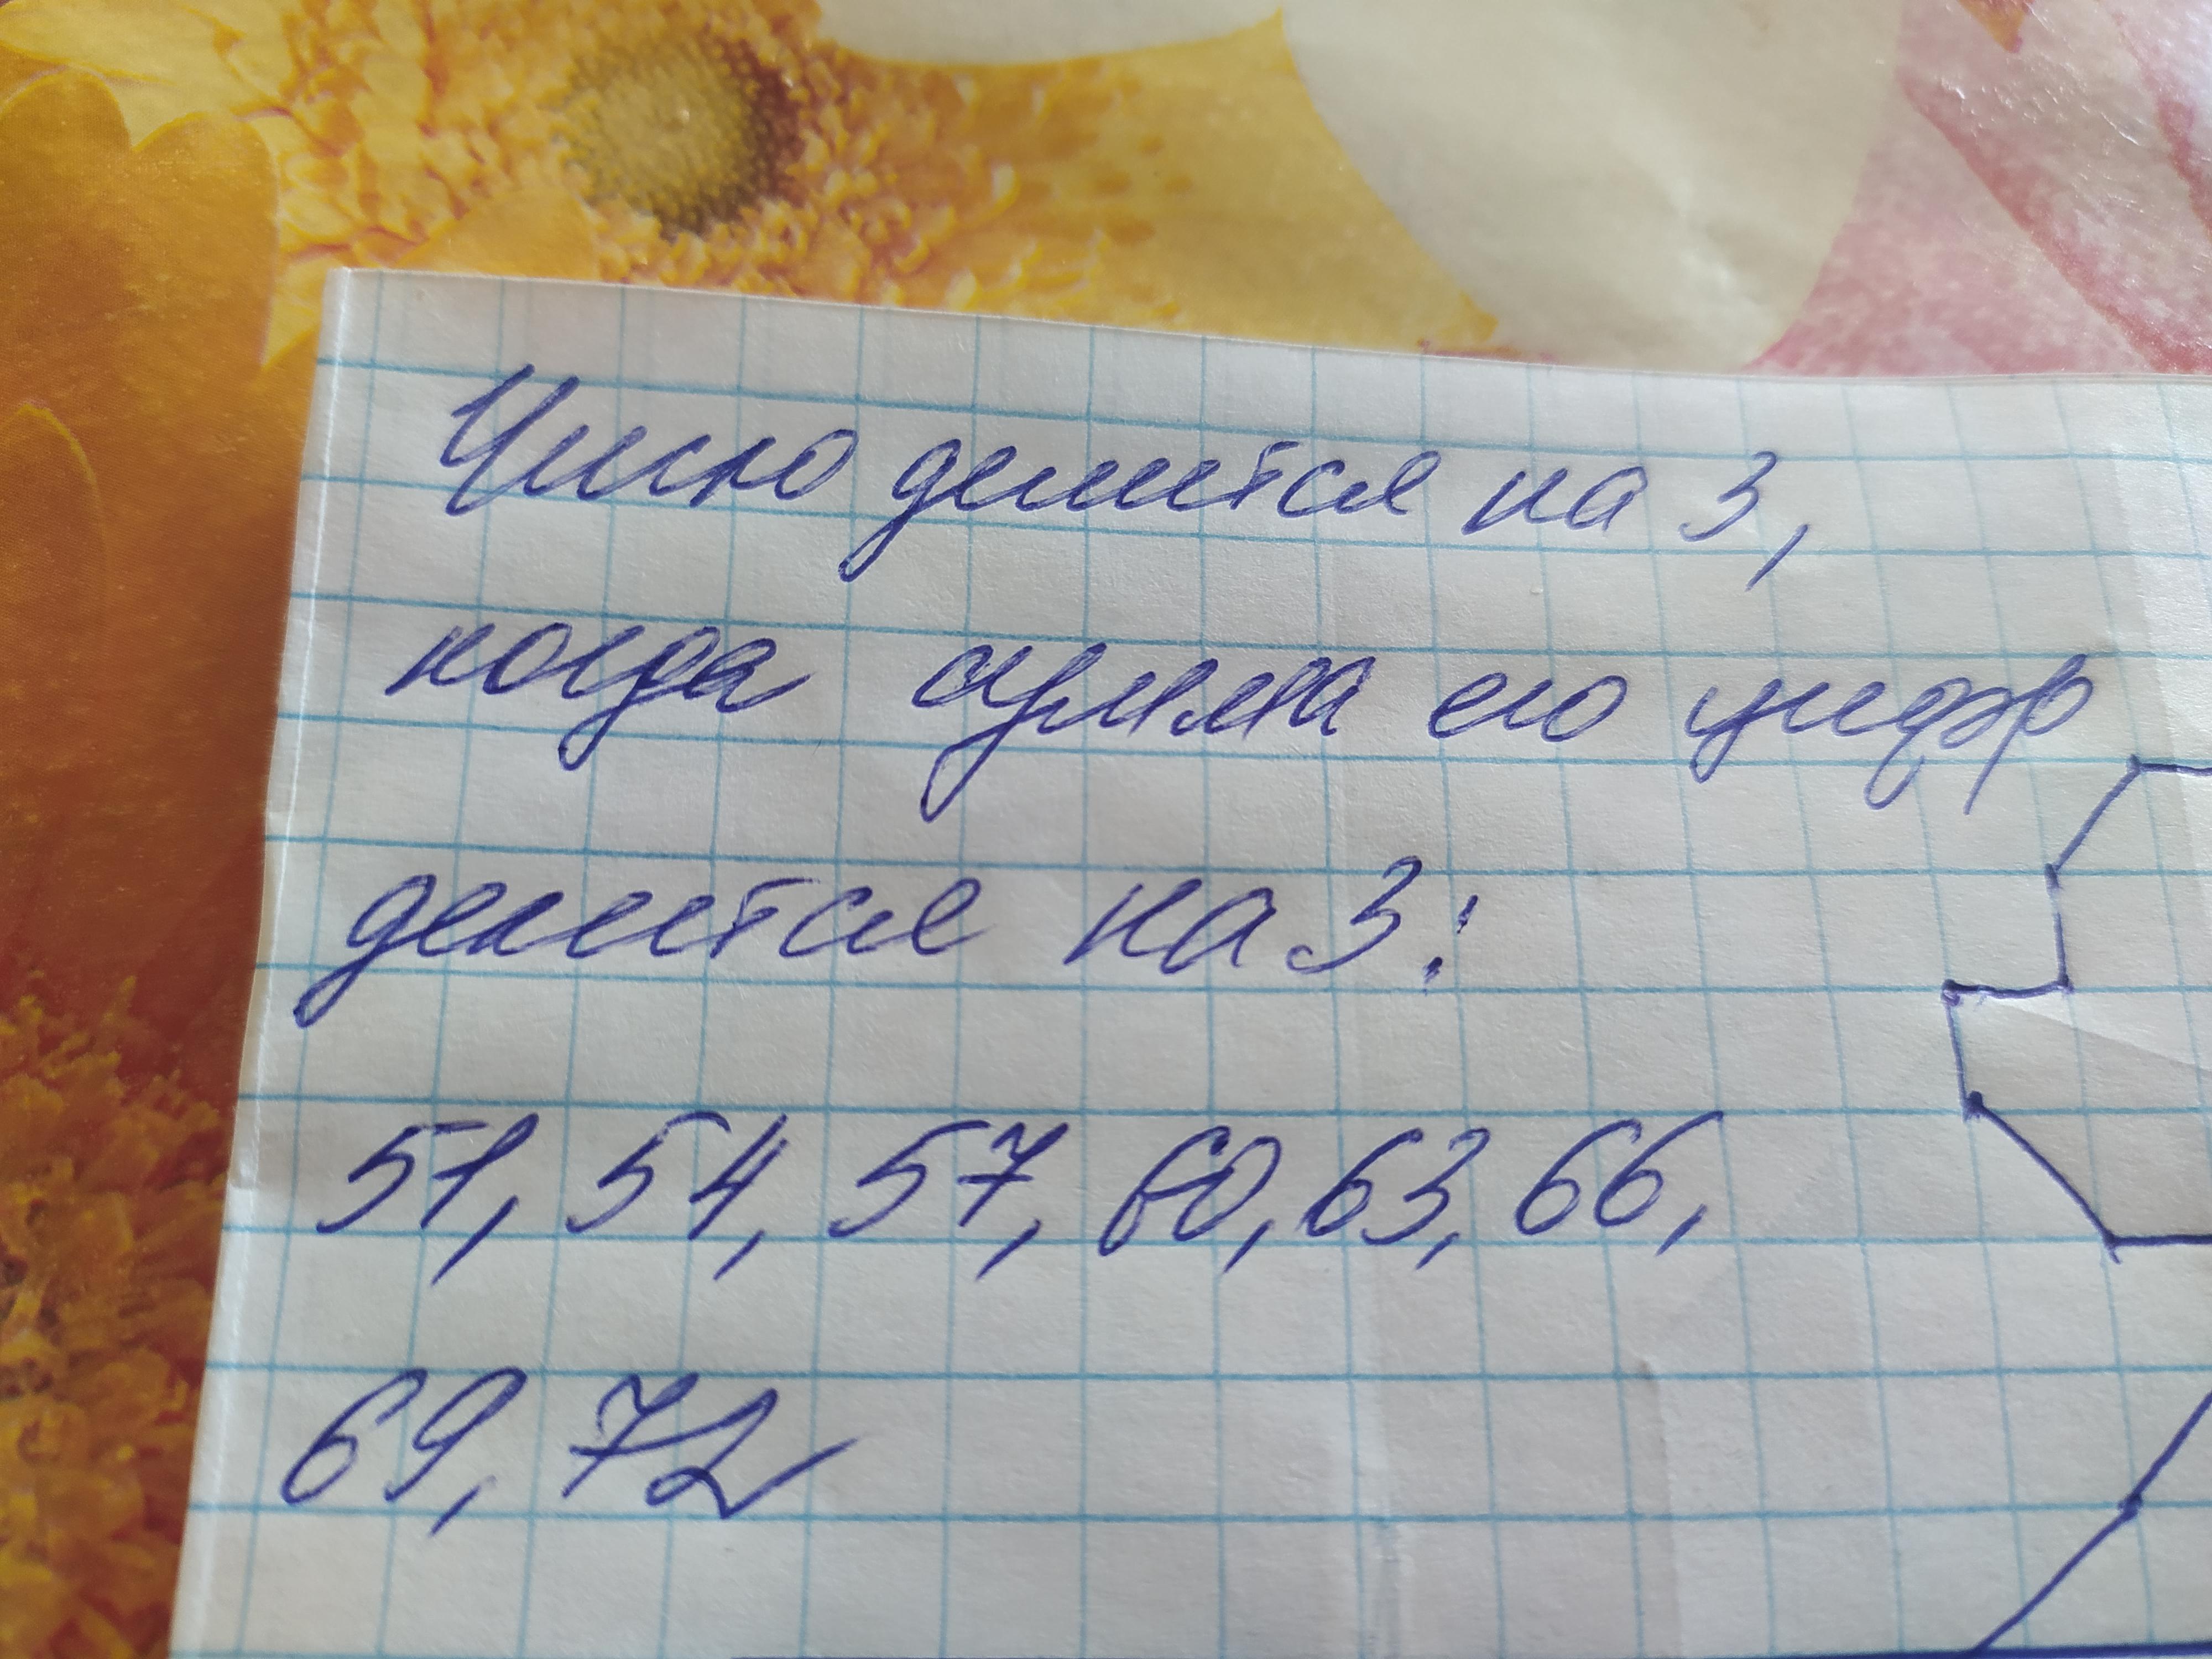 Число делится на 3,
когда сумма его цифр
делится на 3:
51, 54, 57, 60, 63, 66,
69, 72